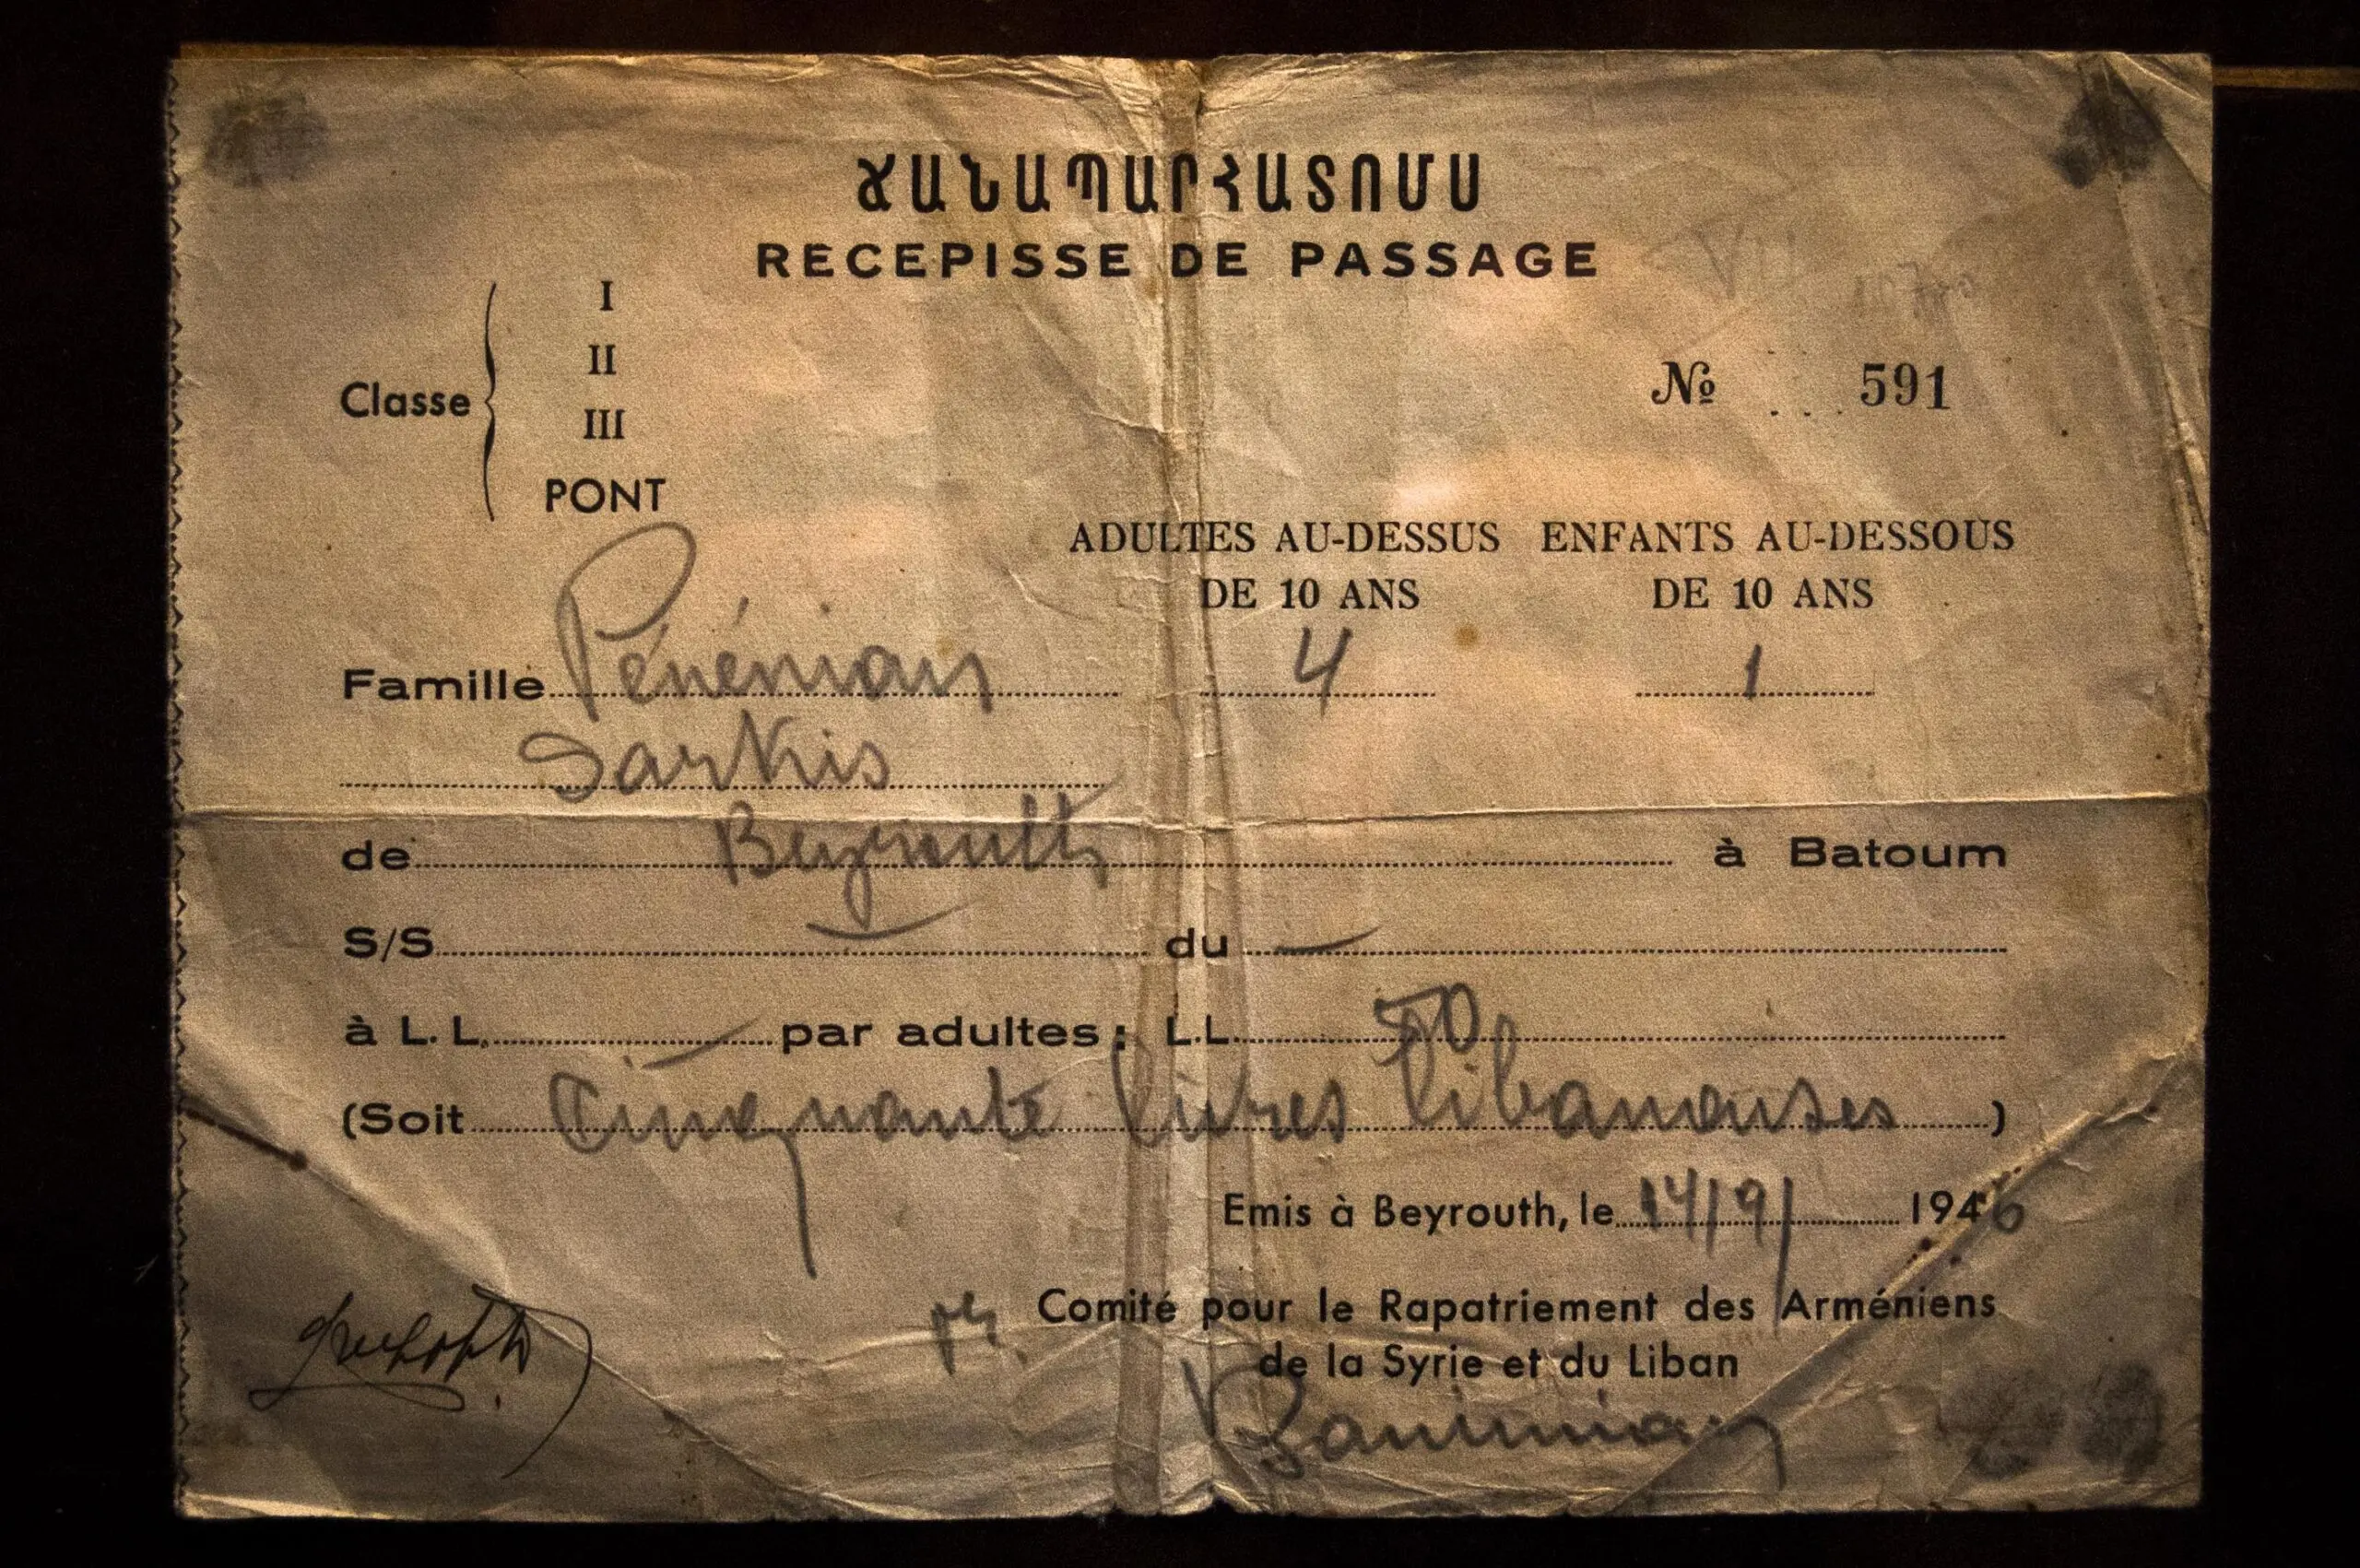 ՃԱՆԱՊԱՐՀԱՏՈՄՍ
RECEPISSE DE PASSAGE
Classe
I
II
III
PONT
№ 591
ADULTES AU-DESSUS DE 10 ANS
ENFANTS AU-DESSOUS DE 10 ANS
Famille Pénénian 4 1
Sarkis
de Beyrouth à Batoum
S/S du
à L. L. par adultes: L.L. 50
(Soit Cinquante livres libanaises)
Emis à Beyrouth, le 14/9/ 1946
Comité pour le Rapatriement des Arméniens
de la Syrie et du Liban